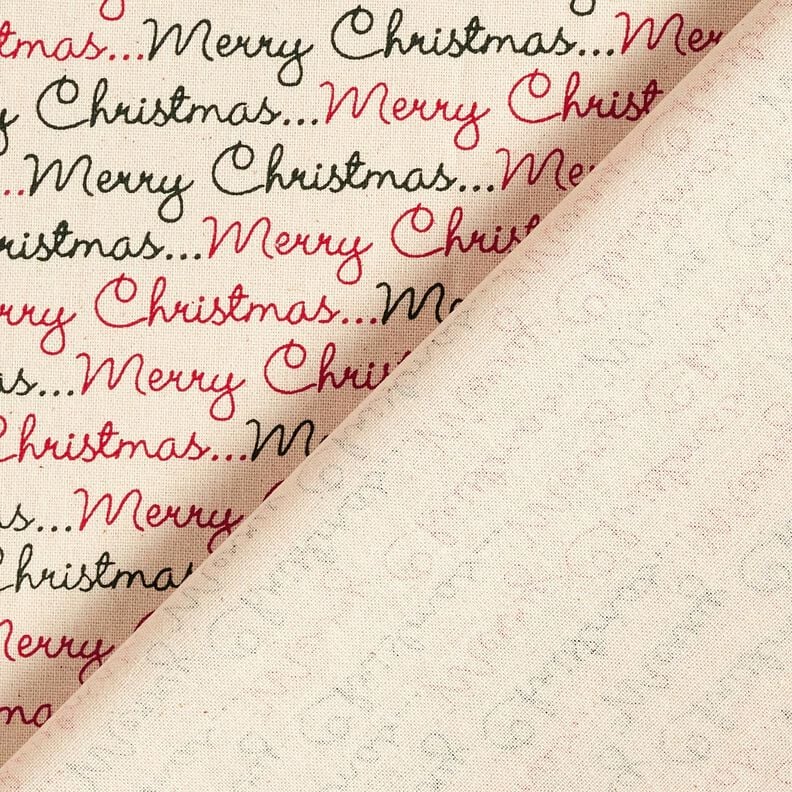 tmas...Merry Christmas...Mer
y Christmas...Merry Christ
..Merry Christmas...Me
ristmas...Merry Chris
rry Christmas...Me
as...Merry Chris
Christmas...M
s...Merry
Christmas
Merry
ma